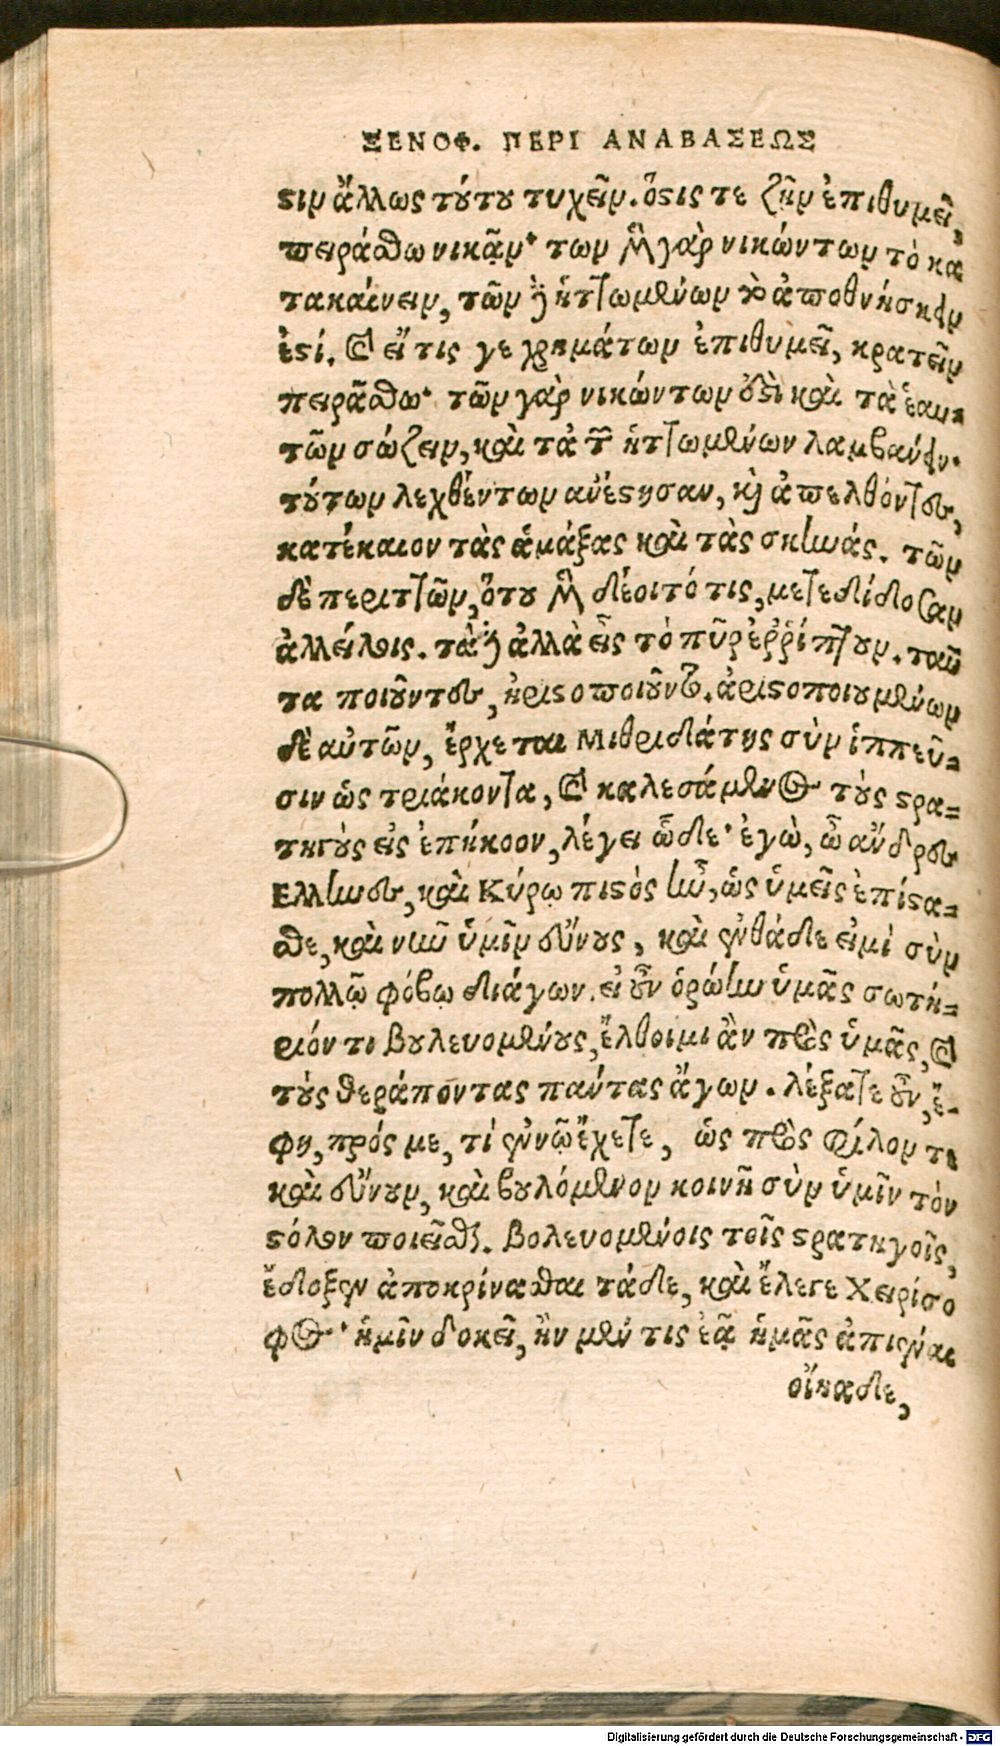 ΞΕΝΟΦ. ΠΕΡΙ ΑΝΑΒΑΣΕΩΣ
ϛιν ἄλλως τούτου τυχεῖν. ὅϛις τε ζῆν ἐπιθυμεῖ,
πειράσθω νικᾶν· των μὲν γὰρ νικώντων τὸ κα
τακαίνειν, τῶν δὲ ἡττωμένων τὸ ἀποθνήσκειν
ἐϛί. καὶ εἴ τις γε χρημάτων ἐπιθυμεῖ, κρατεῖν
πειράσθω· τῶν γὰρ νικώντων ἐϛὶ καὶ τὰ ἑαυ=
τῶν σώζειν, καὶ τὰ τῶν ἡττωμένων λαμβανειν.
τούτων λεχθέντων ανέϛησαν, καὶ ἀπελθόντες,
κατέκαιον τὰς ἁμάξας καὶ τὰς σκηνάς. τῶν
δὲ περιττῶν, ὅτου μὲν δέοιτό τις, μετεδίδοσαν
ἀλλείλοις. τὰ δὲ ἀλλὰ εἰς τὸ πῦρ ἐῤῥίπτουν. ταῦ
τα ποιοῦντες, ἠριϛοποιοῦντο. ἀριϛοποιουμένων
δὲ αὐτῶν, ἔρχεται Μιθριδάτης σὺν ἱππεῦ=
σιν ὡς τριάκοντα, καὶ καλεσάμενος τοὺς ϛρα=
τηγοὺς εἰς ἐπήκοον, λέγει ὧδε· ἐγὼ, ὦ ἄνδρες
Ελληνες, καὶ Κύρῳ πιϛὸς ἦν, ὡς ὑμεῖς ἐπίϛα=
σθε, καὶ νῦν ὑμῖν εὔνους, καὶ ἐνθάδε εἰμὶ σὺν
πολλῷ φόβῳ διάγων. εἰ οὖν ὁρώην ὑμᾶς σωτή=
ριόν τι βουλευομένους, ἔλθοιμι ἂν πρὸς ὑμᾶς, καὶ
τοὺς θεράποντας πάντας ἄγων. λέξατε οὖν, ἔ-
φη, πρός με, τί ἐν νῷ ἔχετε, ὡς πρὸς φίλον τε
καὶ εὔνουν, καὶ βουλόμενον κοινῇ σὺν ὑμῖν τὸν
ϛόλον ποιεῖσθαι. βολευομένοις τοῖς ϛρατηγοῖς,
ἔδοξεν ἀποκρίνασθαι τάδε, καὶ ἔλεγε Χειρίσο
φος· ἡμῖν δοκεῖ, ἢν μέν τις ἐᾷ ἡμᾶς ἀπιέναι
οἴκαδε,
Digitalisierung gefördert durch die Deutsche Forschungsgemeinschaft - DFG